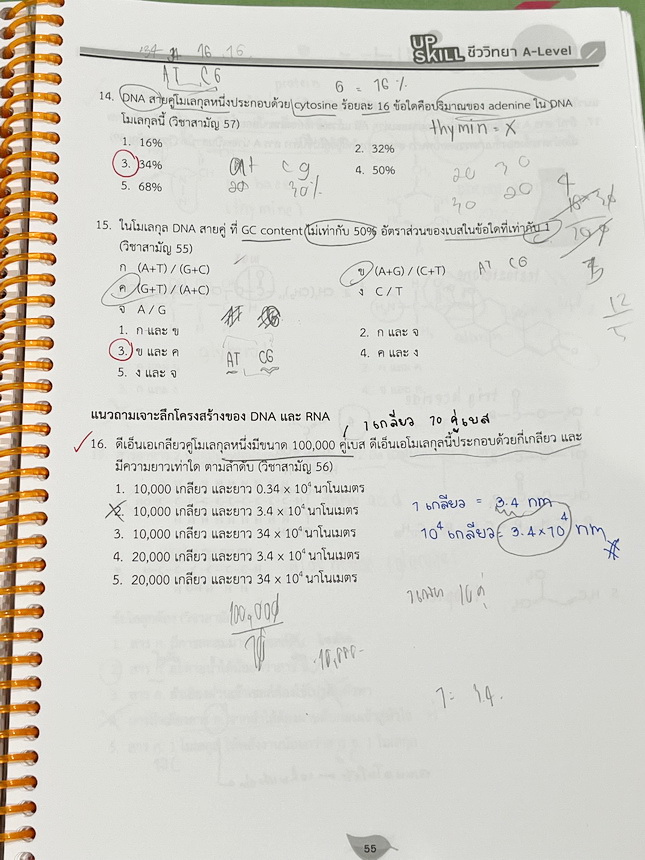 UP SKILL ชีววิทยา A-Level
16 16
AT CG
G = 16 %
14. DNA สายคู่โมเลกุลหนึ่งประกอบด้วย cytosine ร้อยละ 16 ข้อใดคือปริมาณของ adenine ใน DNA
โมเลกุลนี้ (วิชาสามัญ 57)
thymin = X
1. 16%
2. 32%
3. 34%
4. 50%
5. 68%
at cg
20 30%
20 30
30 20
15. ในโมเลกุล DNA สายคู่ ที่ GC content ไม่เท่ากับ 50% อัตราส่วนของเบสในข้อใดที่เท่ากับ 1
(วิชาสามัญ 55)
ก (A+T) / (G+C)
ข (A+G) / (C+T)
AT CG
ค (G+T) / (A+C)
ง C / T
จ A / G
12
5
1. ก และ ข
2. ก และ จ
3. ข และ ค
4. ค และ ง
5. ง และ จ
AT CG
แนวถามเจาะลึกโครงสร้างของ DNA และ RNA
1 เกลียว 10 คู่เบส
16. ดีเอ็นเอเกลียวคู่โมเลกุลหนึ่งมีขนาด 100,000 คู่เบส ดีเอ็นเอโมเลกุลนี้ประกอบด้วยกี่เกลียว และ
มีความยาวเท่าใด ตามลำดับ (วิชาสามัญ 56)
1. 10,000 เกลียว และยาว 0.34 x 10⁴ นาโนเมตร
2. 10,000 เกลียว และยาว 3.4 x 10⁴ นาโนเมตร
3. 10,000 เกลียว และยาว 34 x 10⁴ นาโนเมตร
4. 20,000 เกลียว และยาว 3.4 x 10⁴ นาโนเมตร
5. 20,000 เกลียว และยาว 34 x 10⁴ นาโนเมตร
1 เกลียว = 3.4 nm
10⁴ เกลียว = 3.4 x 10⁴ nm
10 คู่
100,000
10
10,000
1 = 3.4
55